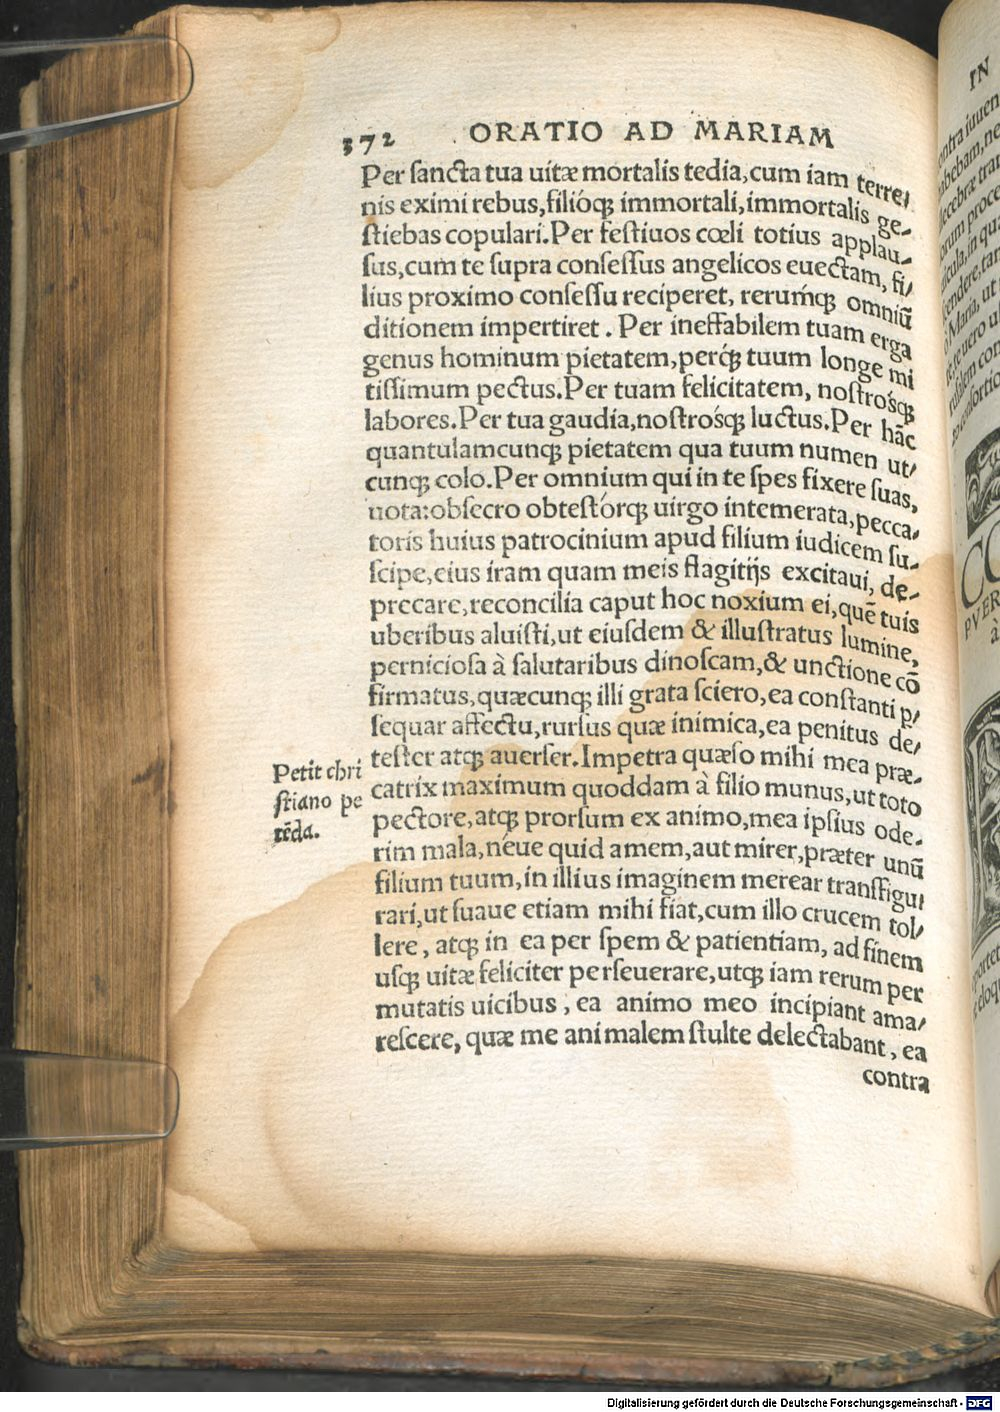 372 ORATIO AD MARIAM
Per sancta tua uitæ mortalis tedia, cum iam terre/
nis eximi rebus, filióq; immortali, immortalis ge/
stiebas copulari. Per festiuos cœli totius applau/
sus, cum te supra consessus angelicos euectam, fi/
lius proximo consessu reciperet, rerumq́; omniū
ditionem impertiret. Per ineffabilem tuam erga
genus hominum pietatem, perq́; tuum longe mi
tissimum pectus. Per tuam felicitatem, nostrosq́;
labores. Per tua gaudia, nostrosq́; luctus. Per hāc
quantulamcunq; pietatem qua tuum numen ut/
cunq; colo. Per omnium qui in te spes fixere suas,
uota: obsecro obtestórq; uirgo intemerata, pecca/
toris huius patrocinium apud filium iudicem su/
scipe, eius iram quam meis flagitijs excitaui, de/
precare, reconcilia caput hoc noxium ei, quē tuis
uberibus aluisti, ut eiusdem & illustratus lumine,
perniciosa à salutaribus dinoscam, & unctione cō
firmatus, quæcunq; illi grata sciero, ea constanti p/
sequar affectu, rursus quæ inimica, ea penitus de/
tester atq; auerser. Impetra quæso mihi mea præ/
catrix maximum quoddam à filio munus, ut toto
pectore, atq; prorsum ex animo, mea ipsius ode/
rim mala, néue quid amem, aut mirer, præter unū
filium tuum, in illius imaginem merear transfigu/
rari, ut suaue etiam mihi fiat, cum illo crucem tol/
lere, atq; in ea per spem & patientiam, ad finem
usq; uitæ feliciter perseuerare, utq; iam rerum per
mutatis uicibus, ea animo meo incipiant ama/
rescere, quæ me animalem stulte delectabant, ea
contra
Petit chri
stiano pe
tēda.
IN
Digitalisierung gefördert durch die Deutsche Forschungsgemeinschaft - DFG